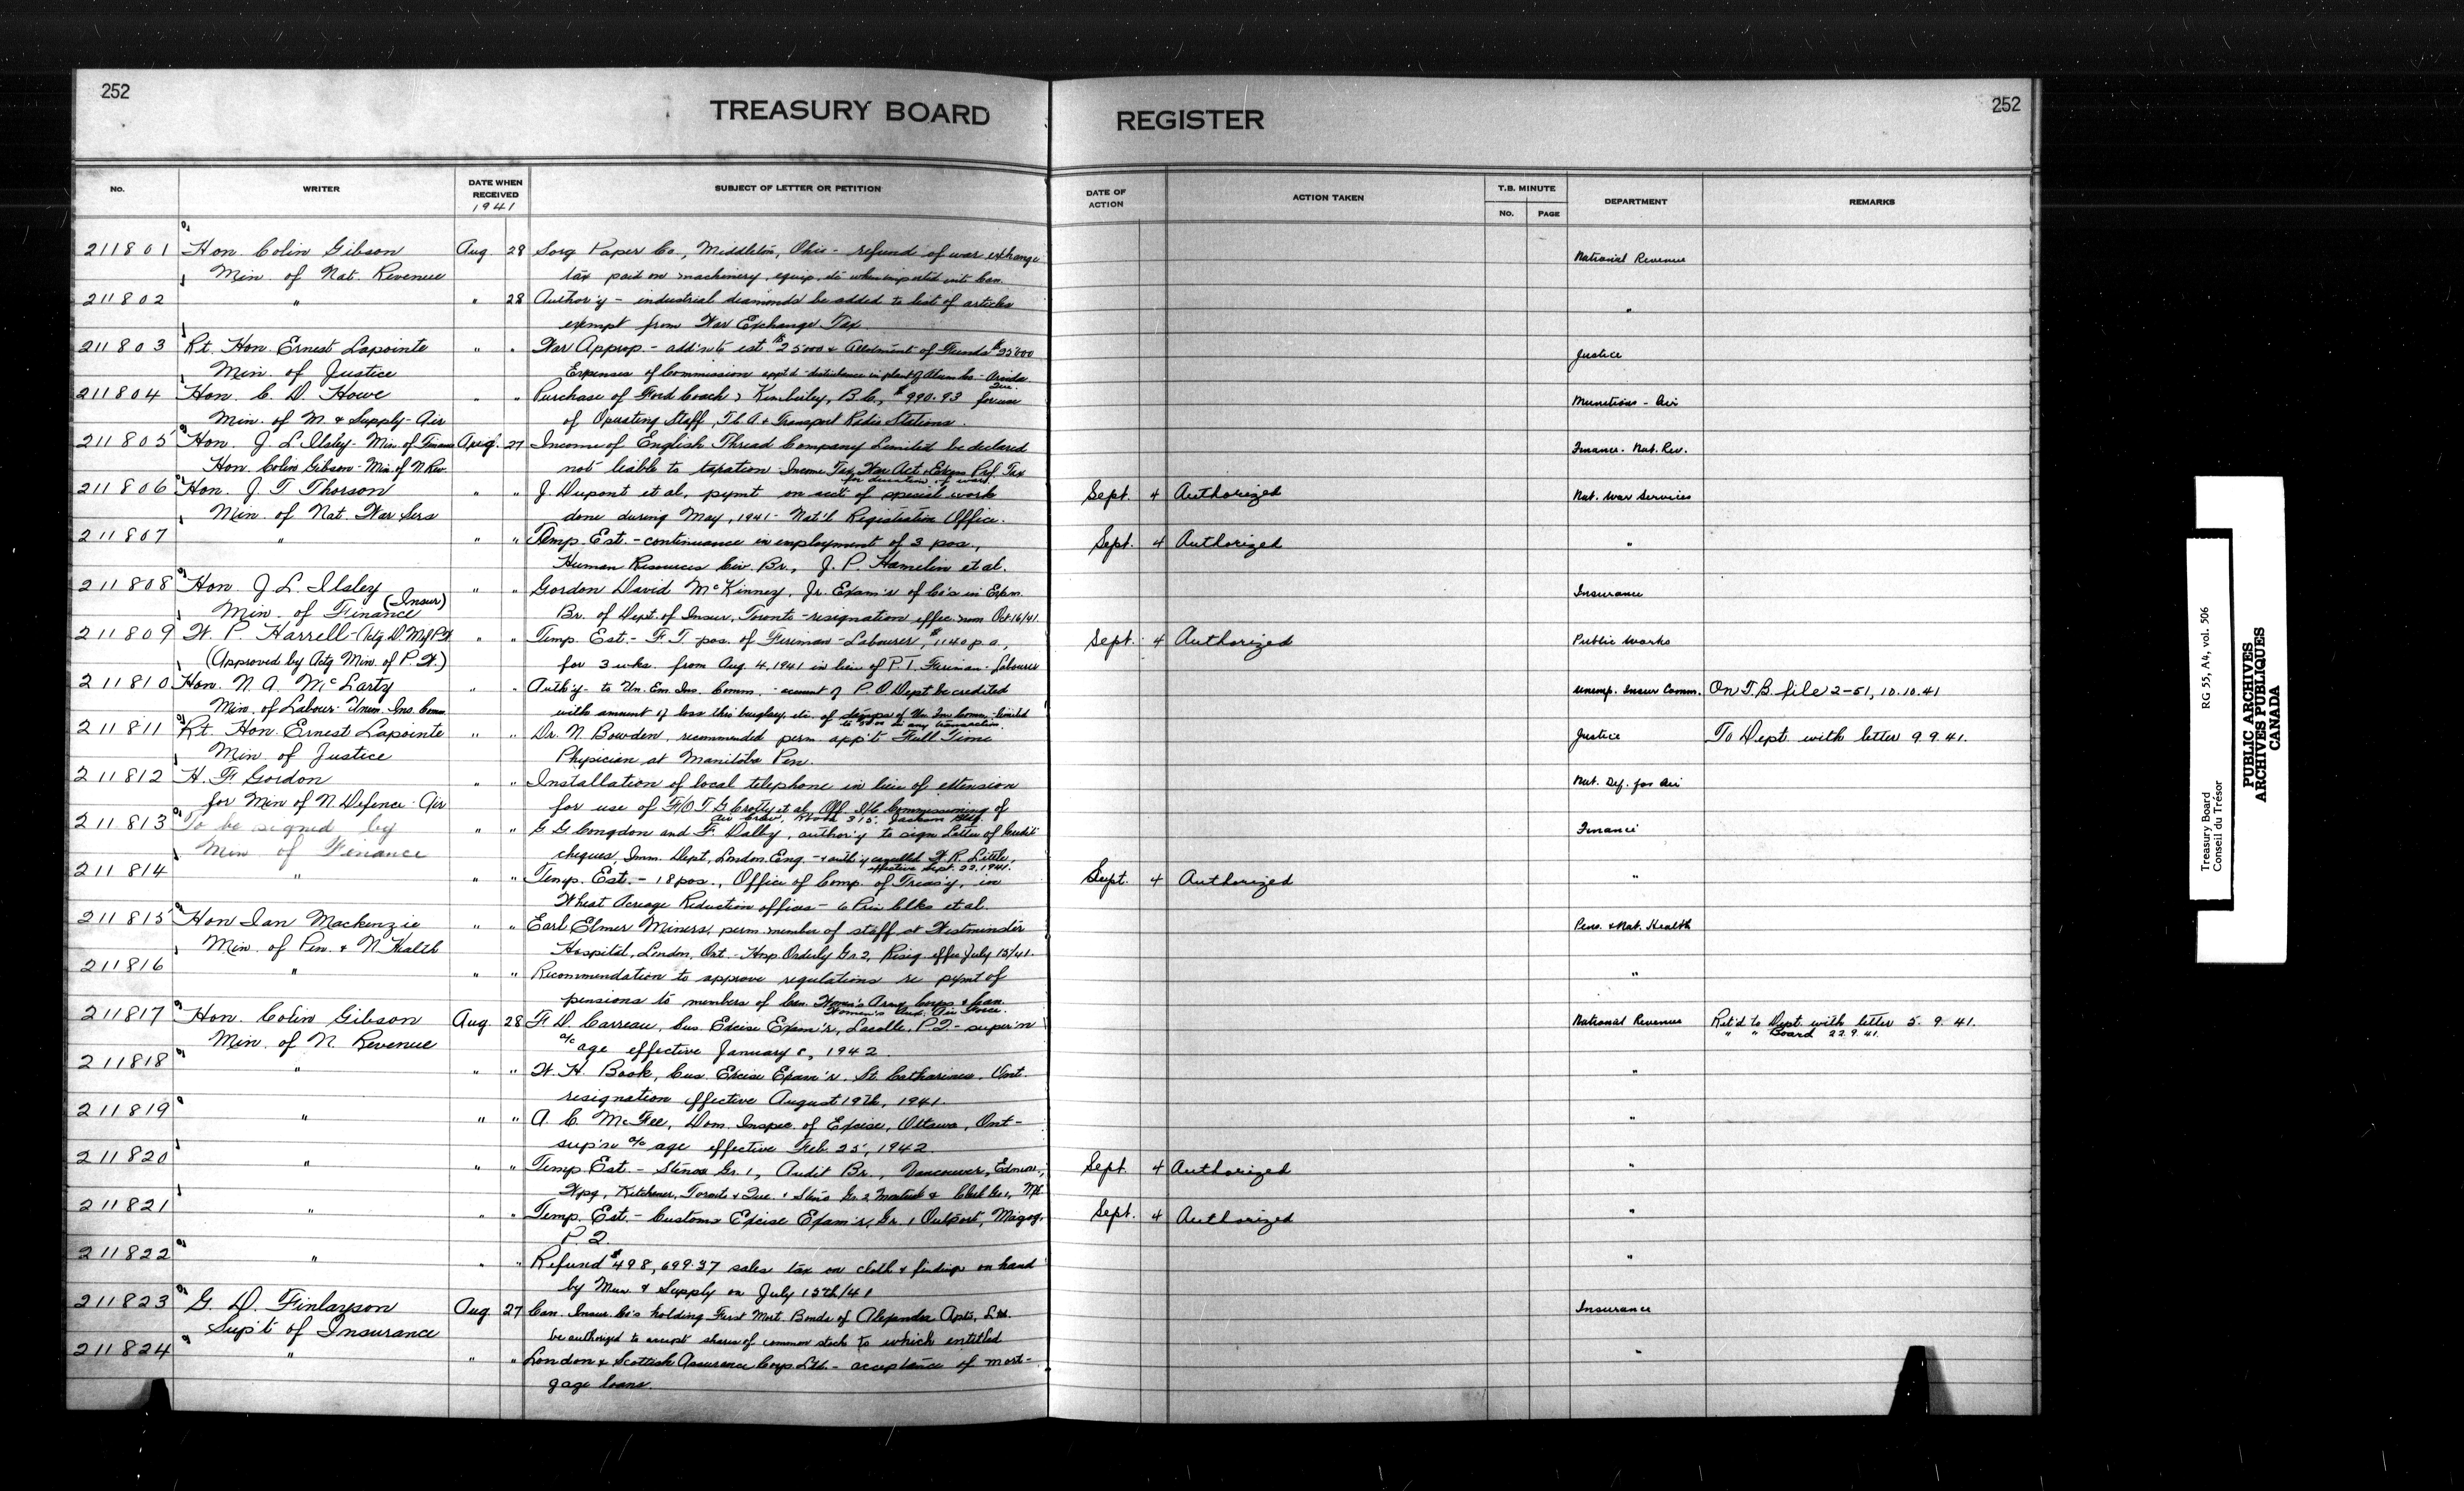 252
252
TREASURY BOARD REGISTER
No. WRITER DATE WHEN RECEIVED 1941 SUBJECT OF LETTER OR PETITION DATE OF ACTION ACTION TAKEN T.B. MINUTE No. PAGE DEPARTMENT REMARKS
211801 Hon. Colin Gibson Aug. 28 Sorg Paper Co., Middleton, Ohio - refund of war exchange National Revenue
Min. of Nat. Revenue tax paid on machinery, equip, etc when imported into Can.
211802 " " 28 Author'y - industrial diamonds be added to list of articles "
exempt from War Exchange Tax.
211803 Rt. Hon. Ernest Lapointe " " War Approp. - add'n to est. $25000 & Allotment of Funds $25000 Justice
Min. of Justice Expenses of Commission appt'd - disturbance in plant of Alum Co - Arvida Que.
211804 Hon. C. D. Howe " " Purchase of Ford Coach, Kimberley, B.C., $990.93 for use Munitions - Air
Min. of M. & Supply - Air of Operating Staff, T C A & Transport Radio Stations.
211805 Hon. J L Ilsley - Min. of Finance Aug. 27 Income of English Thread Company Limited be declared Finance - Nat. Rev.
Hon. Colin Gibson - Min. of N Rev. not liable to taxation - Income Tax War Act & Excess Prof. Tax
for duration of war.
211806 Hon. J. T. Thorson " " J. Dupont et al, pymt on acc't of special work Sept. 4 Authorized Nat. War Services
Min. of Nat. War Sers done during May, 1941 - Nat'l Registration Office.
211807 " " " Temp. Est. - continuance in employment of 3 pos., Sept. 4 Authorized "
Human Resources Civ. Br., J. P. Hamelin et al.
211808 Hon. J. L. Ilsley " " Gordon David McKinney, Jr. Exam'r of Co's in Exam. Insurance
Min. of Finance (Insur) Br. of Dept. of Insur, Toronto - resignation effec. Oct 16/41.
211809 W. P. Harrell - (Actg. D. M of P. W " " Temp. Est. - F. T. pos. of Fireman - Labourer, $1140 p a, Sept. 4 Authorized Public Works
(Approved by Actg Min. of P. W.) for 3 wks. from Aug. 4, 1941 in lieu of P. T. Fireman - Labourer
211810 Hon. N. A. McLarty " " Auth'y - to Un. Em. Ins. Comm. - account of P. O Dept be credited Unemp. Insur Comm. On T.B. file 2-51, 10.10.41
Min. of Labour - Unem. Ins. Comm. with amount of loss thru burglary, etc. of stamps of Un. Ins Comm - limited
to in any transaction.
211811 Rt. Hon. Ernest Lapointe " " Dr. N. Bowden, recommended perm app't Full Time Justice To Dept. with letter 9.9.41.
Min. of Justice Physician at Manitoba Pen.
211812 H. F. Gordon " " Installation of local telephone in lieu of extension Nat. Def. for Air
for Min of N. Defence - Air for use of F/O T. G Crofty et al, Off I/C Commissioning of
Air Crew, Room 315, Jackson Bldg.
211813 To be signed by " " G. G. Congdon and F. Dalby, author'y to sign Letter of Credit Finance
Min of Finance cheques, Imm. Dept, London, Eng. - & auth'y cancelled W. R. Little,
effective Sept. 22, 1941.
211814 " " " Temp. Est. - 18 pos., Office of Comp. of Treas'y, in Sept. 4 Authorized "
Wheat Acreage Reduction offices - 6 Prin Clks et al.
211815 Hon Ian Mackenzie " " Earl Elmer Miners, perm member of staff at Westminster Pens. & Nat. Health
Min. of Pen. & N Health Hospital, London, Ont. - Hosp. Orderly Gr. 2, Resig. effec July 15/41.
211816 " " " Recommendation to approve regulations re pymt of "
pensions to members of Can. Women's Army Corps & Can.
Women's Aux. Air Force.
211817 Hon. Colin Gibson Aug 28 F. D. Carreau, Cus. Excise Exam'r, Lacolle, P.Q. - super'n National Revenue Ret'd to Dept. with letter 5. 9. 41.
Min. of N. Revenue a/c age effective January 8, 1942. " " Board 22.9.41.
211818 " " " W. H. Book, Cus. Excise Exam'r. St. Catharines, Ont. "
resignation effective August 19th, 1941.
211819 " " " A. C. McFee, Dom. Inspec. of Excise, Ottawa, Ont - "
sup'n a/c age effective Feb. 25, 1942.
211820 " " " Temp. Est. - Stenos Gr. 1, Audit Br., Vancouver, Edmon., Sept. 4 Authorized "
Wpg, Kitchener, Toronto & Que. & Steno Gr. 2 Montreal & Clerk Gr 1, Mtl
211821 " " " Temp. Est. - Customs Excise Exam'r, Gr. 1 Outport, Magog, Sept. 4 Authorized "
P. Q.
211822 " " " Refund $498,699.37 sales tax on cloth & findings on hand "
by Mun. & Supply on July 15th/41
211823 G. D. Finlayson Aug 27 Can. Insur. Co's holding First Mort. Bonds of Alexandra Apts, Ltd. Insurance
Sup't of Insurance be authorized to accept shares of common stock to which entitled
211824 " " " London & Scottish Assurance Corp. Ltd. - acceptance of mort- "
gage loans.
Treasury Board RG 55, A4, vol. 506
Conseil du Trésor
PUBLIC ARCHIVES
ARCHIVES PUBLIQUES
CANADA